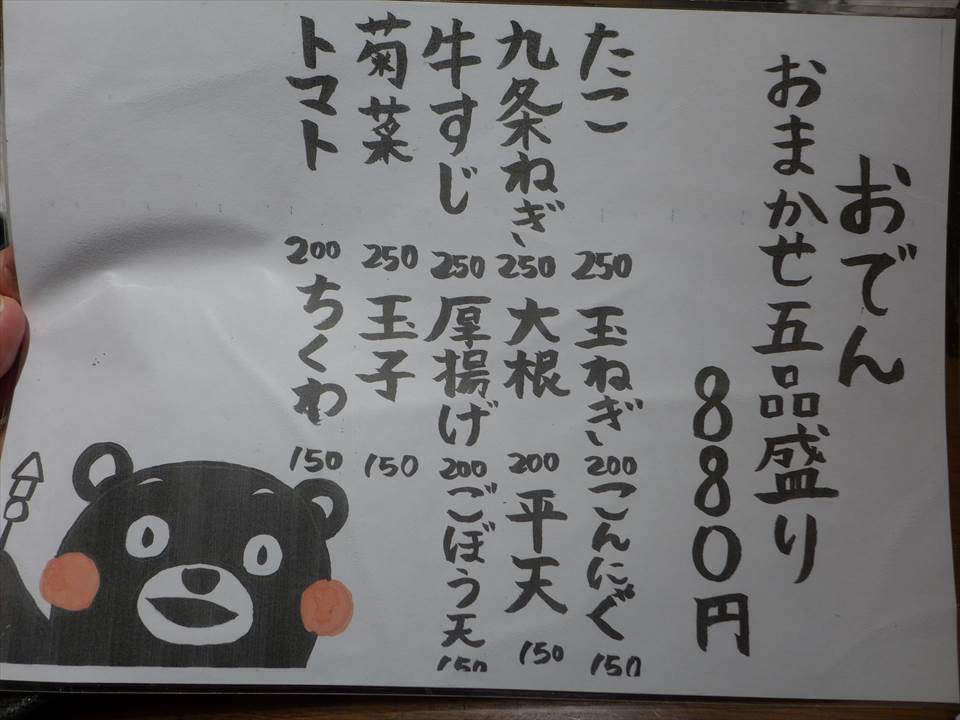 おでん
おまかせ五品盛り
880円
たこ 250 玉ねぎ 200 こんにゃく 150
九条ねぎ 250 大根 200 平天 150
牛すじ 250 厚揚げ 200 ごぼう天 150
菊菜 250 玉子 150
トマト 200 ちくわ 150